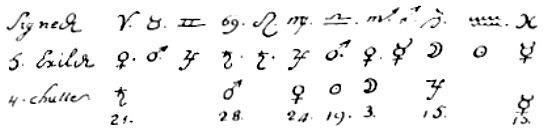 Signes ♈. ♉. ♊ ♋ ♌ ♍ ♎ ♏ ♐ ♑. ♒ ♓
5. Exiles ♀. ♂. ♃ ♄. ♄. ♃ ♂. ♀. ☿ ☽ ☉ ☿
4. chuttes ♄ ♂ ♀ ☉ ☽ ♃ ☿
21. 28. 24. 19. 3. 15. 15.